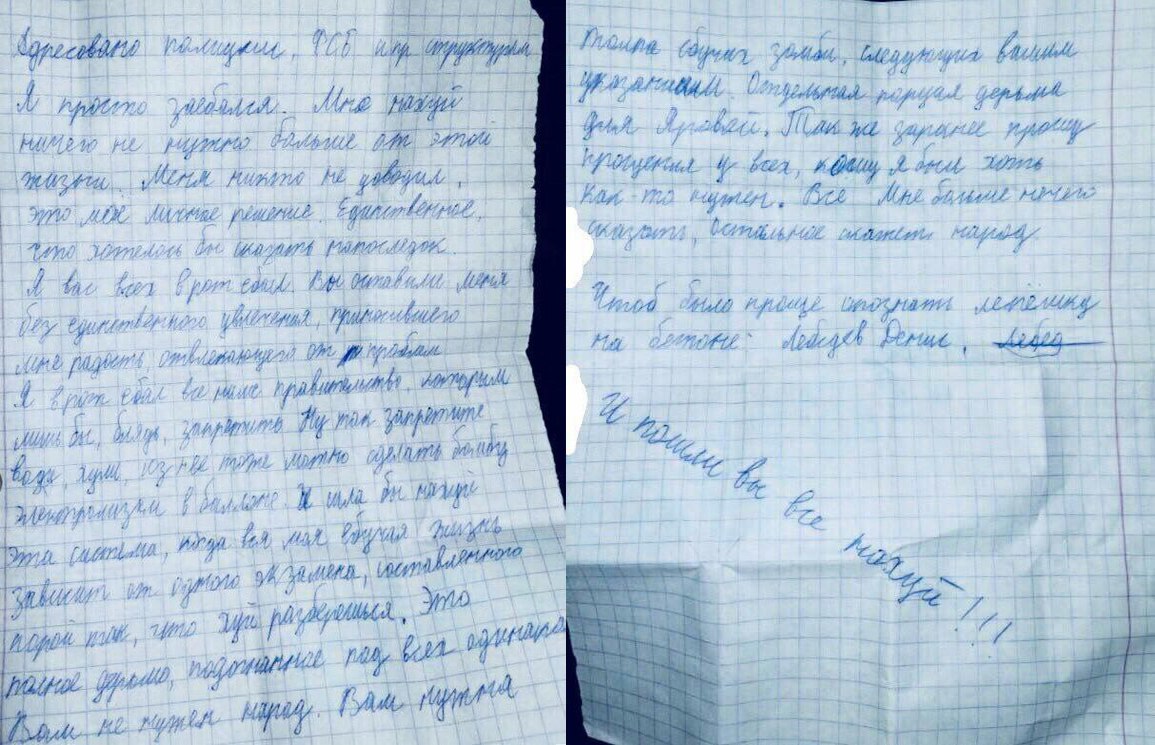 Адресовано полиции, ФСБ и пр структурам
Я просто заебался. Мне нахуй
ничего не нужно больше от этой
жизни. Меня никто не доводил,
это моё личное решение. Единственное,
что хотелось бы сказать напоследок.
Я вас всех в рот ебал. Вы оставили меня
без единственного увлечения, приносившего
мне радость, отвлекающего от проблем
Я в рот ебал все наше правительство, которым
лишь бы, блядь, запретить. Ну так запретите
воду, хули, из неё тоже можно сделать бомбу
электролизом в балляне. И шла бы нахуй
эта система, когда вся моя ебучая жизнь
зависит от одного экзамена, составленного
порой так, что хуй разберёшься. Это
полное дерьмо, подогнанное под всех одинаково
Вам не нужен народ. Вам нужна
толпа ебучих зомби, следующих вашим
указаниям. Отдельная порция дерьма
для Яровой. Так же заранее прошу
прощения у всех, кому я был хоть
как то нужен. Все Мне больше нечего
сказать, остальное скажет народ
Чтоб было проще опознать лепёшку
на бетоне: Лебедев Денис. Лебед
И пошли вы все нахуй!!!